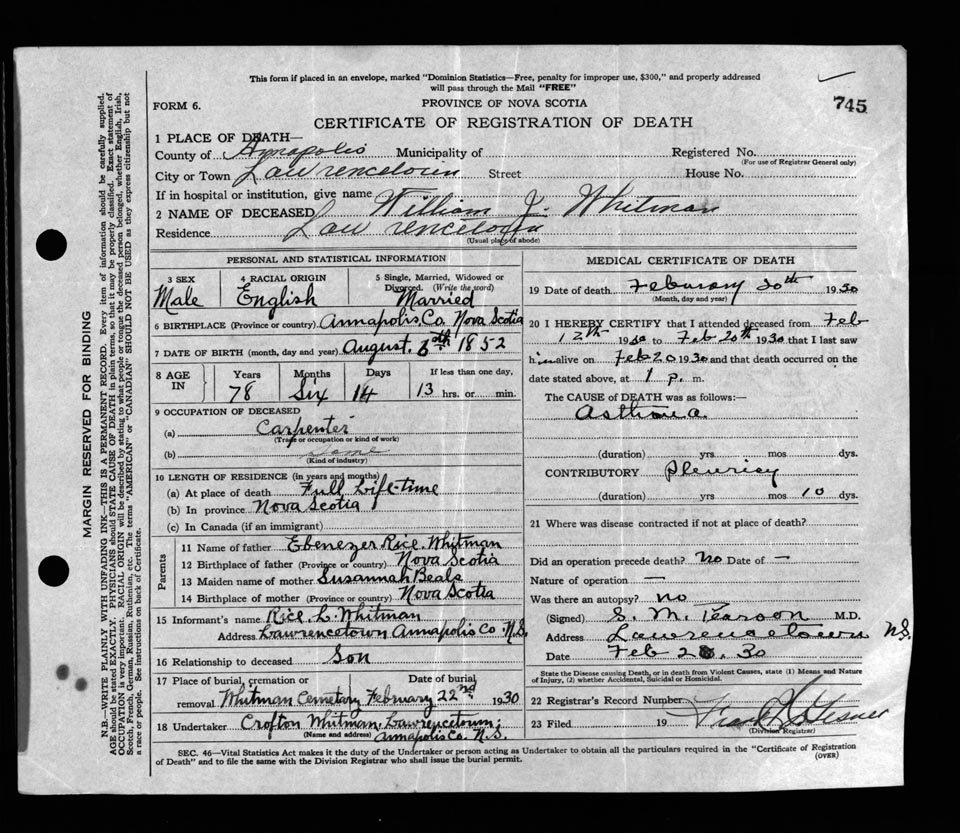 This form if placed in an envelope, marked "Dominion Statistics—Free, penalty for improper use, $300," and properly addressed
will pass through the Mail "FREE"
745
FORM 6.
PROVINCE OF NOVA SCOTIA
CERTIFICATE OF REGISTRATION OF DEATH
1 PLACE OF DEATH—
County of Annapolis Municipality of Registered No.
(For use of Registrar General only)
City or Town Lawrencetown Street House No.
If in hospital or institution, give name
2 NAME OF DECEASED William J. Whitman
Residence Lawrencetown
(Usual place of abode)
PERSONAL AND STATISTICAL INFORMATION
3 SEX 4 RACIAL ORIGIN 5 Single, Married, Widowed or
Divorced. (Write the word)
Male English Married
6 BIRTHPLACE (Province or country) Annapolis Co. Nova Scotia
7 DATE OF BIRTH (month, day and year) August 6th 1852
8 AGE IN Years Months Days If less than one day,
78 Six 14 13 hrs. or min.
9 OCCUPATION OF DECEASED
(a) Carpenter
(Trade or occupation or kind of work)
(b) Same
(Kind of industry)
10 LENGTH OF RESIDENCE (in years and months)
(a) At place of death Full Life-time
(b) In province Nova Scotia
(c) In Canada (if an immigrant)
Parents
11 Name of father Ebenezer Rice Whitman
12 Birthplace of father (Province or country) Nova Scotia
13 Maiden name of mother Susannah Beals
14 Birthplace of mother (Province or country) Nova Scotia
15 Informant's name Rice L. Whitman
Address Lawrencetown Annapolis Co. N.S.
16 Relationship to deceased Son
17 Place of burial, cremation or Date of burial
removal Whitman Cemetary February 22nd 1930
18 Undertaker Crofton Whitman, Lawrencetown,
(Name and address) Annapolis Co. N.S.
MEDICAL CERTIFICATE OF DEATH
19 Date of death Feburary 20th 1930
(Month, day and year)
20 I HEREBY CERTIFY that I attended deceased from Feb
12th 1930 to Feb 20th 1930 that I last saw
him alive on Feb 20 1930 and that death occurred on the
date stated above, at 1 p. m.
The CAUSE of DEATH was as follows:—
Asthma
(duration) yrs mos dys.
CONTRIBUTORY Pleurisy
(duration) yrs mos 10 dys.
21 Where was disease contracted if not at place of death?
Did an operation precede death? No Date of —
Nature of operation —
Was there an autopsy? no
(Signed) S. M. M.D.
Address Lawrencetown N.S.
Date Feb 30
State the Disease causing Death, or in death from Violent Causes, state (1) Means and Nature
of Injury, (2) whether Accidental, Suicidal or Homicidal.
22 Registrar's Record Number
23 Filed 19
(Division Registrar)
SEC. 46—Vital Statistics Act makes it the duty of the Undertaker or person acting as Undertaker to obtain all the particulars required in the "Certificate of Registration
of Death" and to file the same with the Division Registrar who shall issue the burial permit.
(OVER)
MARGIN RESERVED FOR BINDING
N.B.—WRITE PLAINLY WITH UNFADING INK—THIS IS A PERMANENT RECORD. Every item of information should be carefully supplied.
AGE should be stated EXACTLY. PHYSICIANS should STATE CAUSE OF DEATH in plain terms, so that it may be properly classified. Exact statement of
OCCUPATION is very important. RACIAL ORIGIN will be described by stating to what people or tongue the deceased person belonged, whether English, Irish,
Scotch, French, German, Russian, Ruthenian, etc. The terms "AMERICAN" or "CANADIAN" SHOULD NOT BE USED as they express citizenship but not
a race or people. See instructions on back of Certificate.